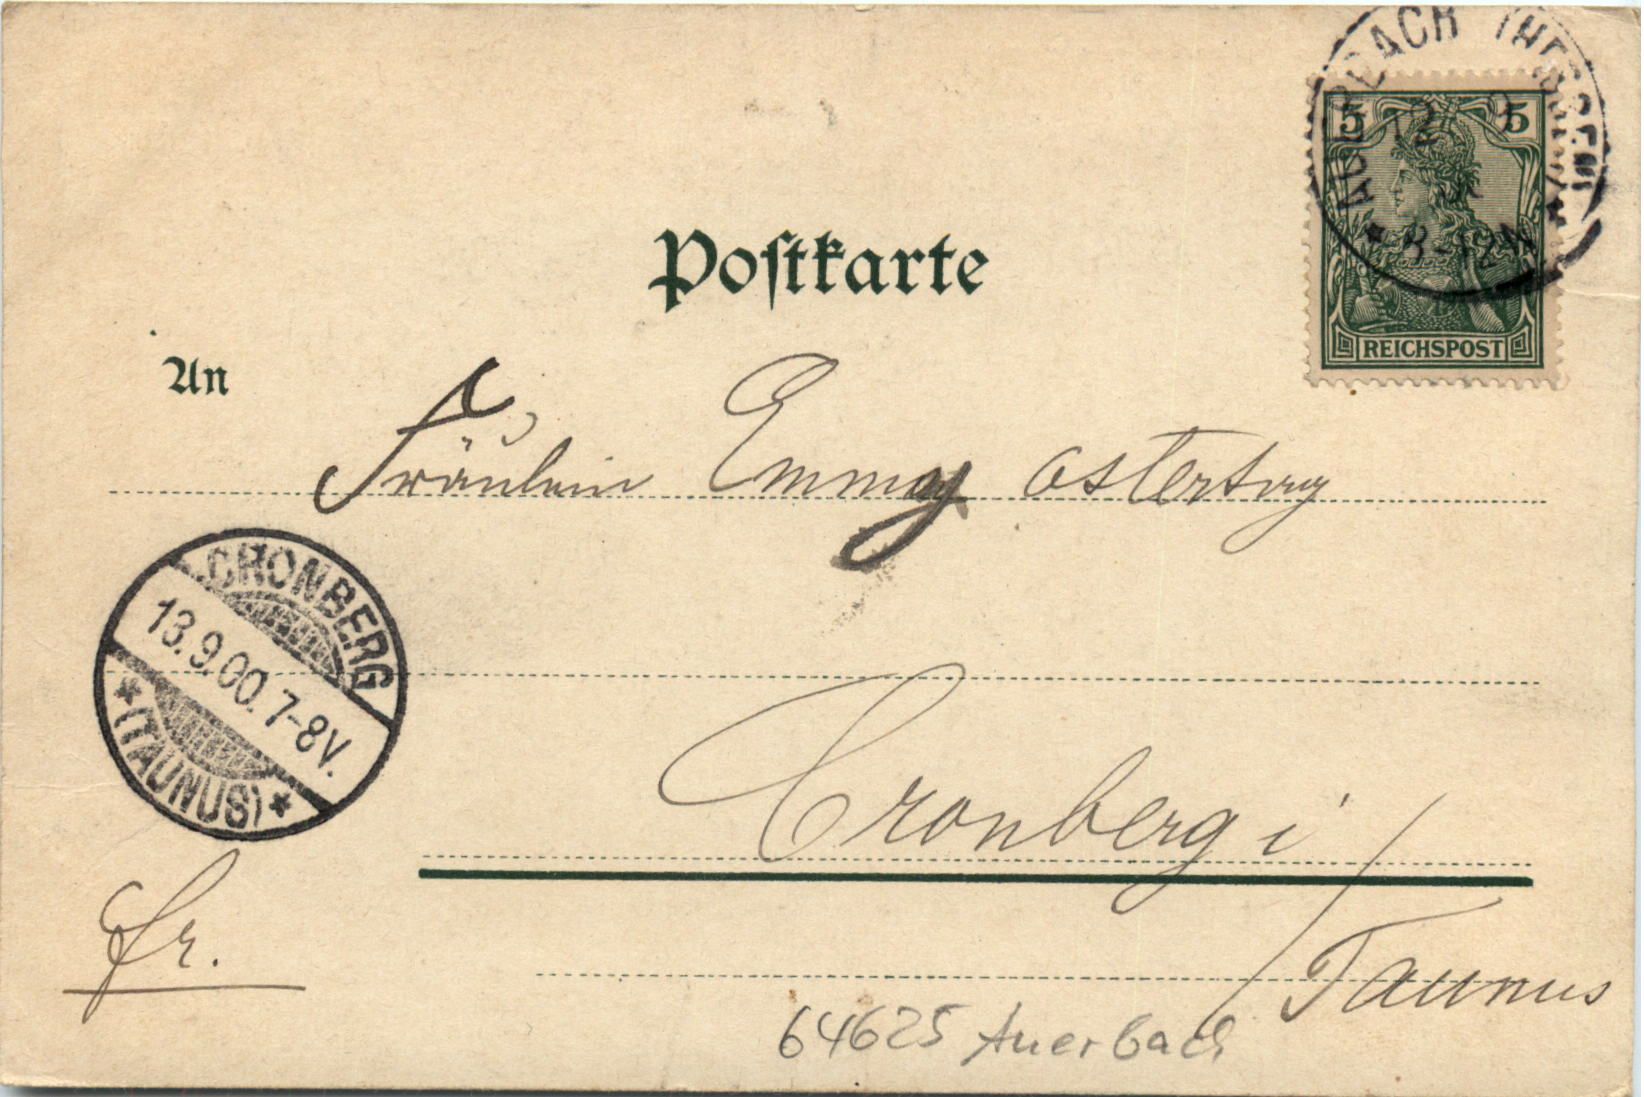 AUERBACH (HESSEN)
12 9
8-12N
5 5
REICHSPOST
Postkarte
An
Fräulein Emmy Ostertag
CRONBERG
13.9.00.7-8V.
*(TAUNUS)*
Cronberg i/
Taunus
fr.
64625 Auerbach